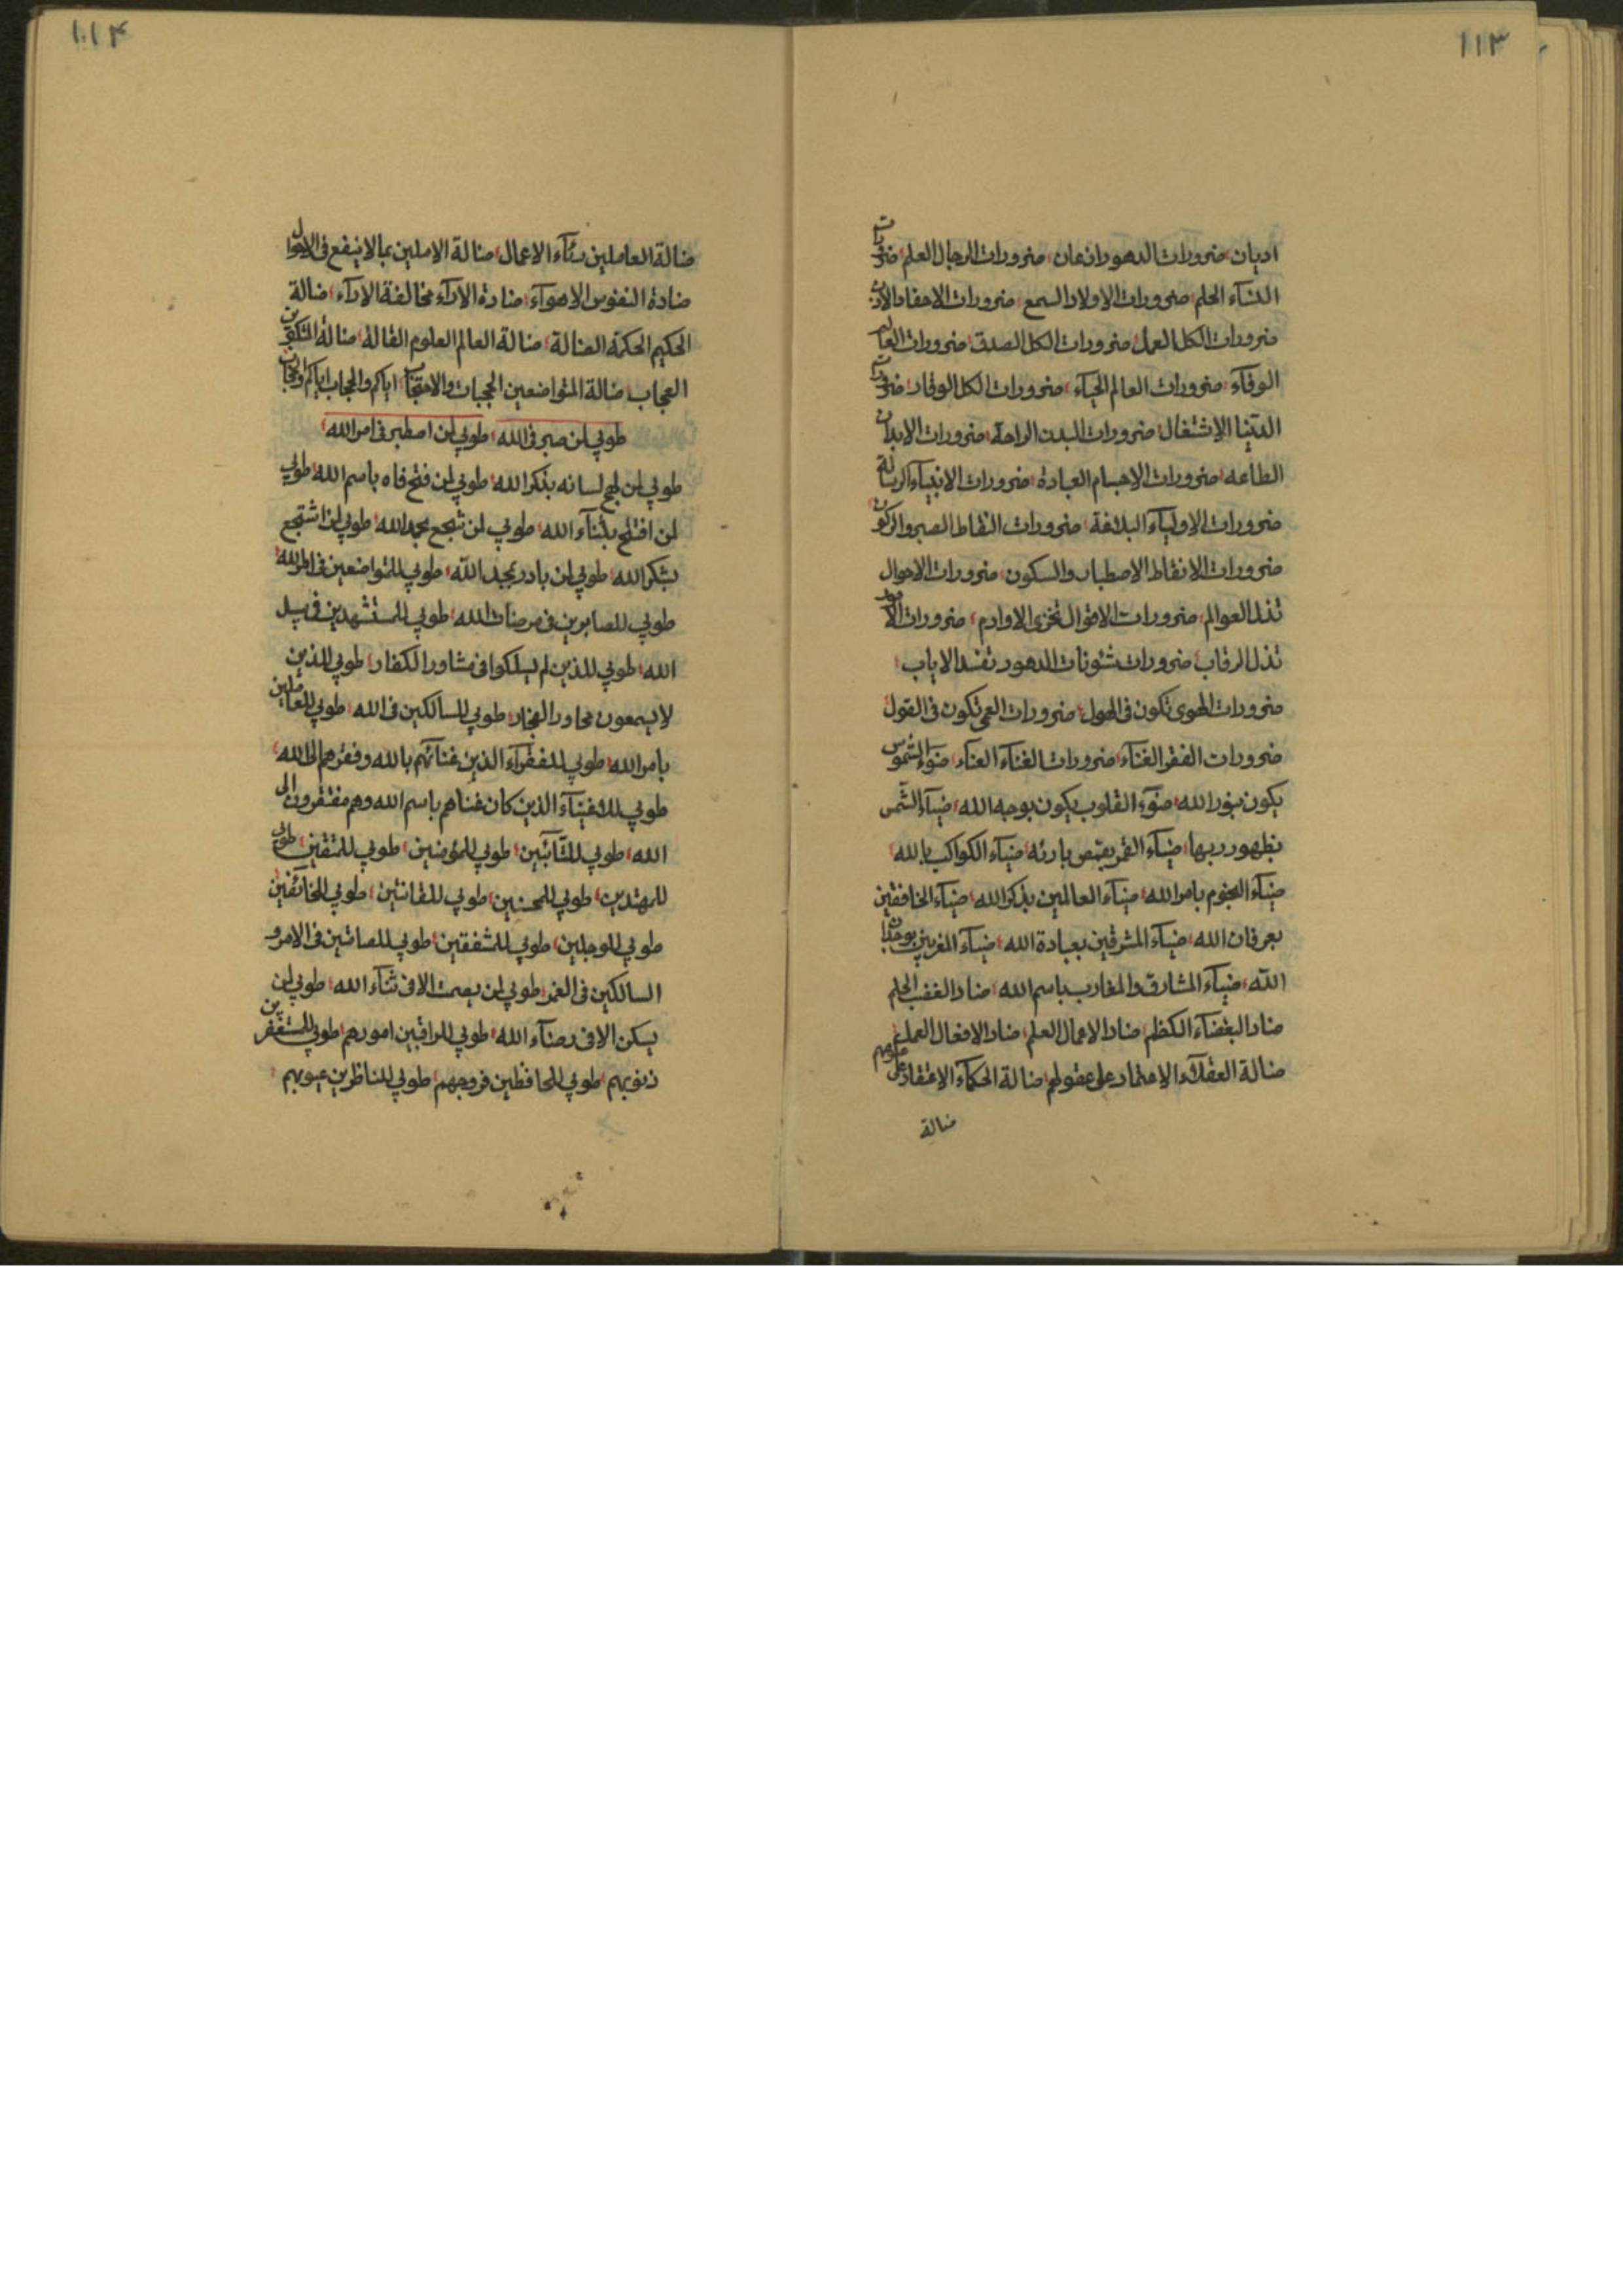 ١١٣
اديان، ضرورات الدهور اذعان، ضرورات الرجال العلم، ضرورات
النسآء الحلم، ضرورات الاولاد السمع، ضرورات الاحفاد الاذن
ضرورات الكل العمل، ضرورات الكل الصدق، ضرورات العالم
الوفآء، ضرورات العالم الحيآء، ضرورات الكل الوقار، ضرورات
الدنيا الاشتغال، ضرورات البدن الراحة، ضرورات الابدان
الطاعه، ضرورات الاجسام العبادة، ضرورات الانبيآء الرسالة
ضرورات الاوليآء البلاغة، ضرورات النقاط الصبر والركون
ضرورات الانقاط الاصطبار والسكون، ضرورات الاحوال
تذل العوالم، ضرورات الاقوال تخزى الاوادم، ضرورات الامور
تذل الرقاب، ضرورات شئونات الدهور تفسد الاياب،
ضرورات الهوى تكون فى الهول، ضرورات العمى تكون فى القول
ضرورات الفقر الغنآء، ضرورات الغنآء العنآء، ضوء الشموس
يكون بنور الله، ضوء القلوب يكون بوجه الله، ضيآء الشمس
بظهور ربها، ضيآء القمر بقمص بارئه، ضيآء الكواكب بالله،
ضيآء النجوم بامر الله، ضيآء العالمين بذكر الله، ضيآء الخافقين
بعرفان الله، ضيآء المشرقين بعبادة الله، ضيآء المغربين بوجدان
الله، ضيآء المشارق والمغارب باسم الله، ضاد الغضب الحلم
ضاد البغضآء الكظم، ضاد الاعمال العلم، ضاد الافعال العمل،
ضالة العقلآء الاعتماد على عقولهم، ضالة الحكمآء الاعتقاد على علومهم
ضالة
١١٤
ضالة العاملين رئآء الاعمال، ضالة الاملين بما لا ينفع فى الاحوال
ضادة النفوس الاهوآء، ضادة الارآء مخالفة الارآء، ضالة
الحكيم الحكمة الضالة، ضالة العالم العلوم القالة، ضالة المتكبرين
العجاب، ضالة المتواضعين الحجبات والاحتجاب، اياكم والحجاب اياكم
طوبى لمن صبر فى الله، طوبى لمن اصطبر فى امر الله،
طوبى لمن لهج لسانه بذكر الله، طوبى لمن فتح فاه باسم الله، طوبى
لمن افتتح بثنآء الله، طوبى لمن تبجع بحمد الله، طوبى لمن
بشكر الله، طوبى لمن بادر بمجد الله، طوبى للمتواضعين فى امر الله،
طوبى للصابرين فى مرضات الله، طوبى للمستشهدين فى سبيل
الله، طوبى للذين لم يسلكوا فى مشاور الكفار، طوبى للذين
لا يسمعون محاور الفجار، طوبى للسالكين فى الله، طوبى للعاملين
بامر الله، طوبى للفقرآء الذين غنائهم بالله وفقرهم الى الله،
طوبى للاغنيآء الذين كان غناهم باسم الله وهم مفتقرون الى
الله، طوبى للتآئبين، طوبى للمؤمنين، طوبى للمتقين، طوبى
للمهتدين، طوبى للمحسنين، طوبى للقانتين، طوبى للخائفين
طوبى للوجلين، طوبى للمشفقين، طوبى للصامتين فى الامر و
السالكين فى الغمر، طوبى لمن يصمت الا فى ثنآء الله، طوبى لمن
يسكن الا فى رضآء الله، طوبى للراقبين امورهم، طوبى للمستغفرين
ذنوبهم، طوبى للحافظين فروجهم، طوبى للناظرين عيوبهم،